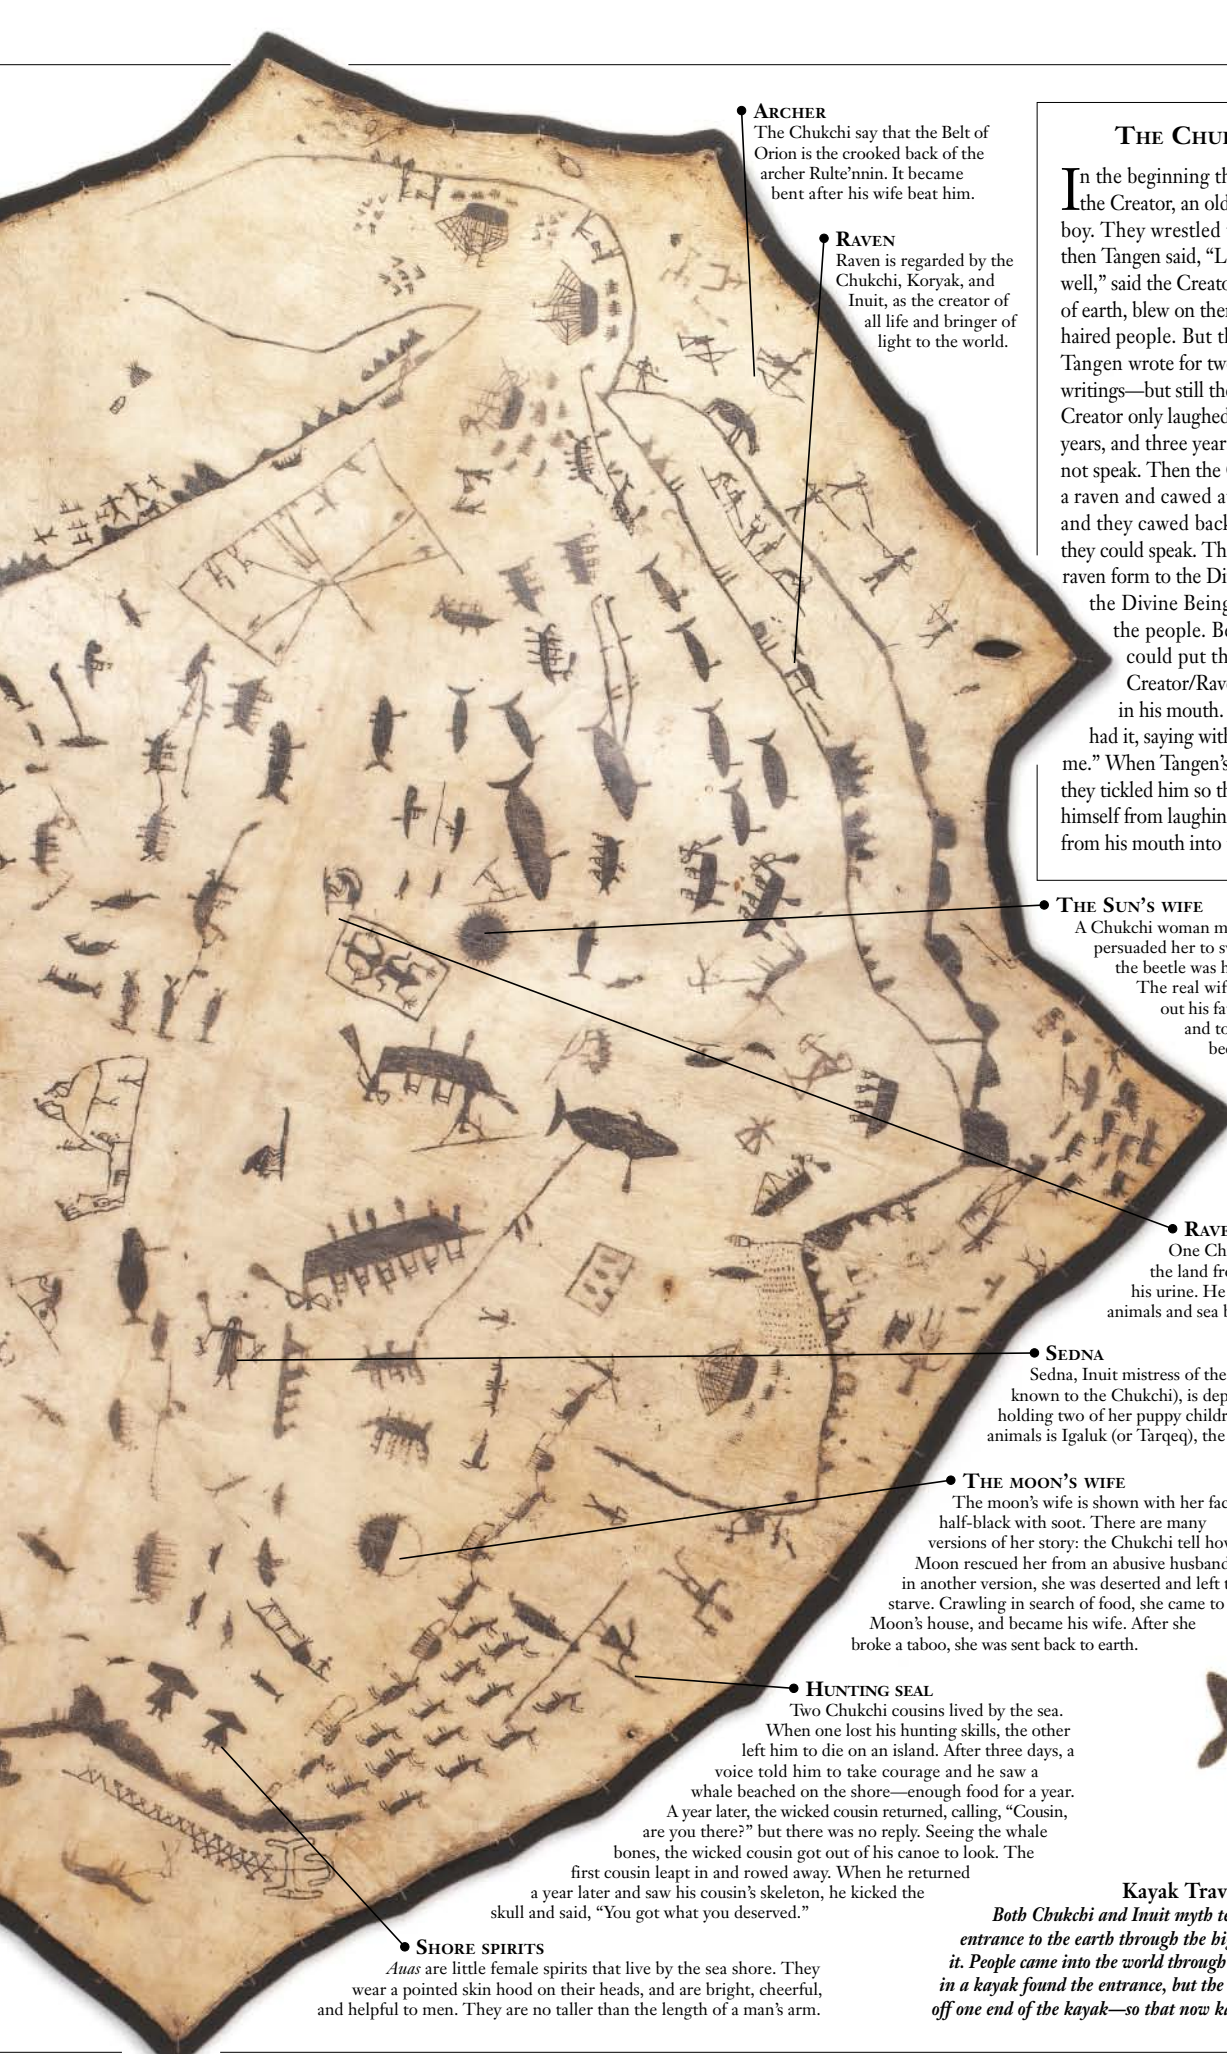 ARCHER
The Chukchi say that the Belt of
Orion is the crooked back of the
archer Rulte’nnin. It became
bent after his wife beat him.
RAVEN
Raven is regarded by the
Chukchi, Koryak, and
Inuit, as the creator of
all life and bringer of
light to the world.
THE
In the beginning
the Creator, an
boy. They wrestled
then Tangen said,
well,” said the
of earth, blew on
haired people. But
Tangen wrote for
writings—but still
Creator only laughed
years, and three
not speak. Then the
a raven and cawed
and they cawed back
they could speak.
raven form to the
the Divine Being
the people.
could put
Creator/
in his mouth.
had it, saying
me.” When Tangen’s
they tickled him so
himself from
from his mouth into
THE SUN’S WIFE
A Chukchi woman
persuaded her to
the beetle was
The real
out his
and
One
the land
his urine. He
animals and sea
SEDNA
Sedna, Inuit mistress of the
known to the Chukchi), is
holding two of her puppy
animals is Igaluk (or Tarqeq), the
THE MOON’S WIFE
The moon’s wife is shown with her
half-black with soot. There are many
versions of her story: the Chukchi tell
Moon rescued her from an abusive husband
in another version, she was deserted and left
starve. Crawling in search of food, she came to
Moon’s house, and became his wife. After she
broke a taboo, she was sent back to earth.
HUNTING SEAL
Two Chukchi cousins lived by the sea.
When one lost his hunting skills, the other
left him to die on an island. After three days, a
voice told him to take courage and he saw a
whale beached on the shore—enough food for a year.
A year later, the wicked cousin returned, calling, “Cousin,
are you there?” but there was no reply. Seeing the whale
bones, the wicked cousin got out of his canoe to look. The
first cousin leapt in and rowed away. When he returned
a year later and saw his cousin’s skeleton, he kicked the
skull and said, “You got what you deserved.”
Kayak
Both Chukchi and Inuit myth
entrance to the earth through the
it. People came into the world through
in a kayak found the entrance, but the
off one end of the kayak—so that now
SHORE SPIRITS
Auas are little female spirits that live by the sea shore. They
wear a pointed skin hood on their heads, and are bright, cheerful,
and helpful to men. They are no taller than the length of a man’s arm.